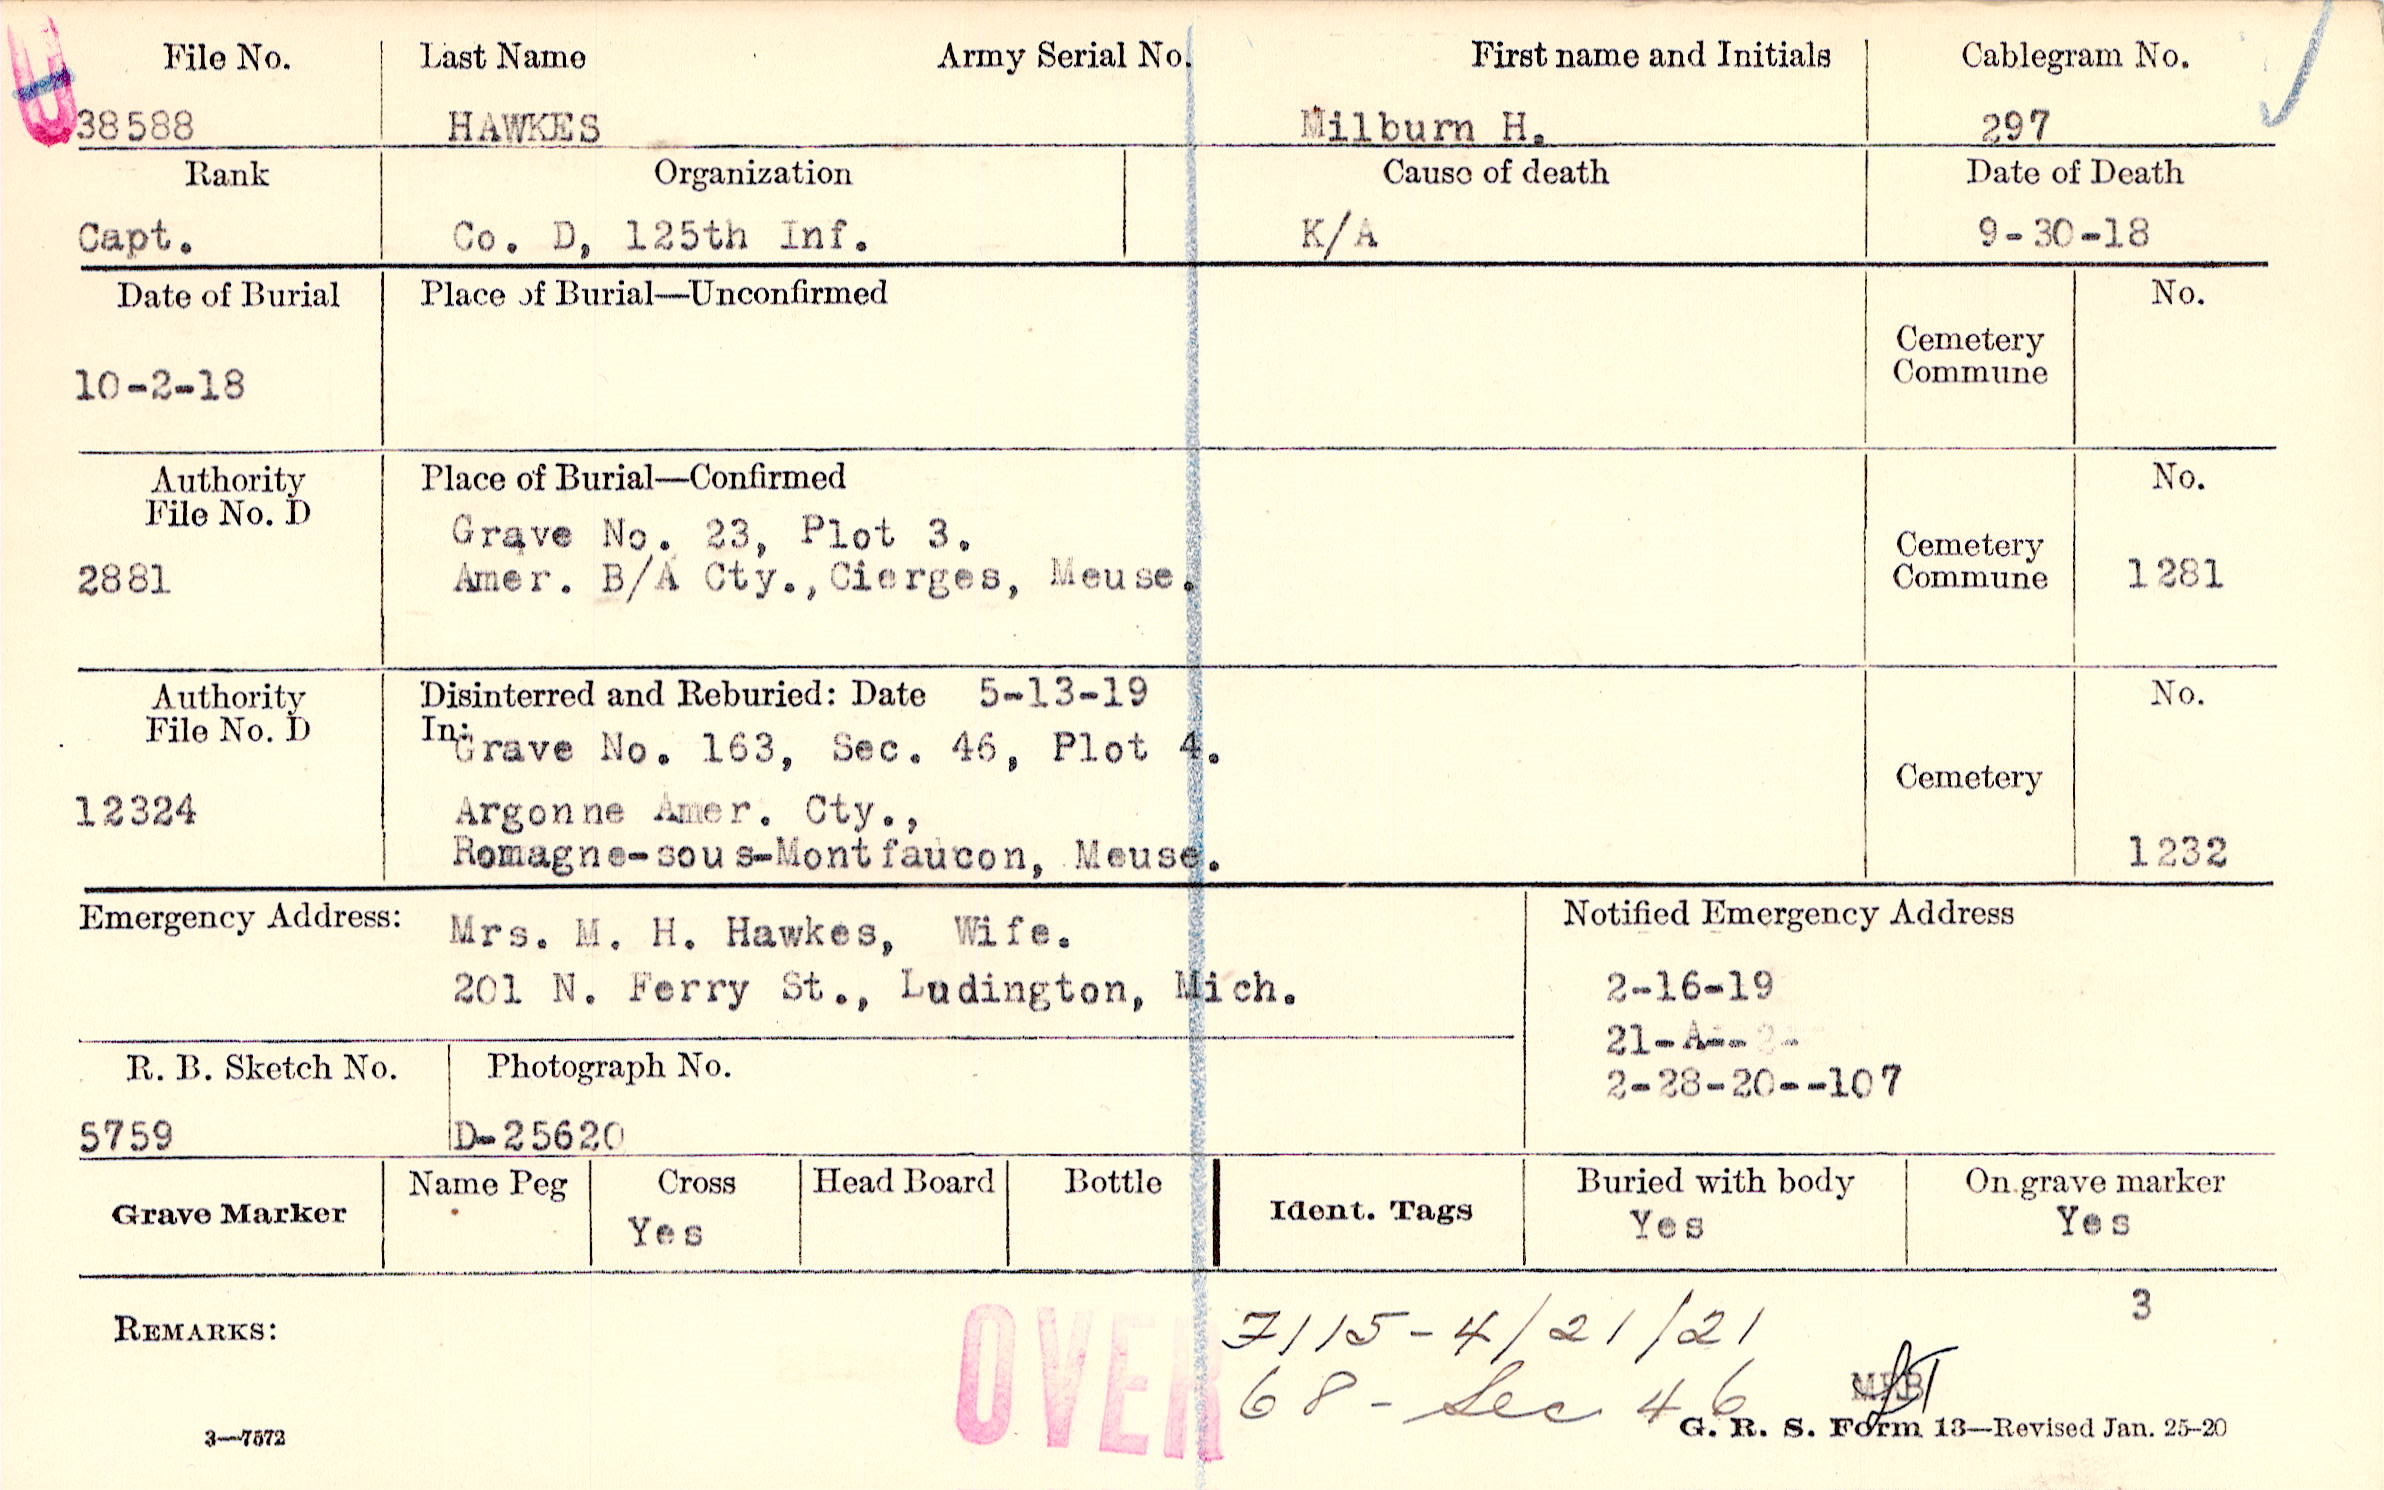 File No. Last Name Army Serial No. First name and Initials Cablegram No.
38588 HAWKES Milburn H. 297
Rank Organization Cause of death Date of Death
Capt. Co. D, 125th Inf. K/A 9-30-18
Date of Burial Place of Burial—Unconfirmed No.
Cemetery
Commune
10-2-18
Authority Place of Burial—Confirmed No.
File No. D
Grave No. 23, Plot 3.
Cemetery
2881 Amer. B/A Cty., Cierges, Meuse. Commune 1281
Authority Disinterred and Reburied: Date 5-13-19 No.
File No. D In:
Grave No. 163, Sec. 46, Plot 4.
Cemetery
12324 Argonne Amer. Cty.,
Romagne-sous-Montfaucon, Meuse. 1232
Emergency Address: Mrs. M. H. Hawkes, Wife. Notified Emergency Address
201 N. Ferry St., Ludington, Mich. 2-16-19
21-A--
R. B. Sketch No. Photograph No. 2-28-20--107
5759 D-25620
Grave Marker Name Peg Cross Head Board Bottle Ident. Tags Buried with body On grave marker
Yes Yes Yes
3
REMARKS: OVER 7115-4/21/21
68 - Sec 46
3—7572 G. R. S. Form 13—Revised Jan. 25-20